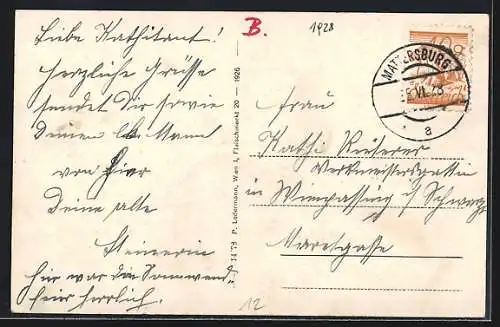 Liebe Kathitant!
Herzliche Grüsse
sendet Dir sowie
Deinem lb. Mann
von hier
Deine alte
Steinerin
hier war die Sonnwend
feier herrlich.
B.
1928
MATTERSBURG
VI. 28
a
Frau
Kathi
Werkmeistersgattin
in Wimpassing a/ Schwarz
Marktgasse
14 79 P. Ledermann, Wien I., Fleischmarkt 20 — 1926
12